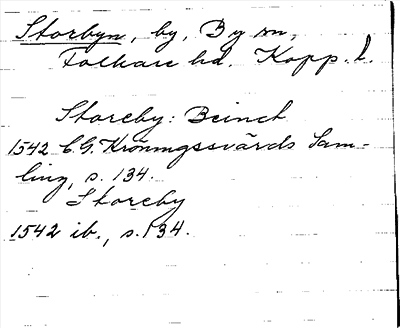 Storbyn, by, By sn,
Folkare hd. Kopp. l.
Storeby: Beinct
1542 C.G. Kröningssvärds Sam-
ling, s. 134.
Storeby
1542 ib., s. 134.